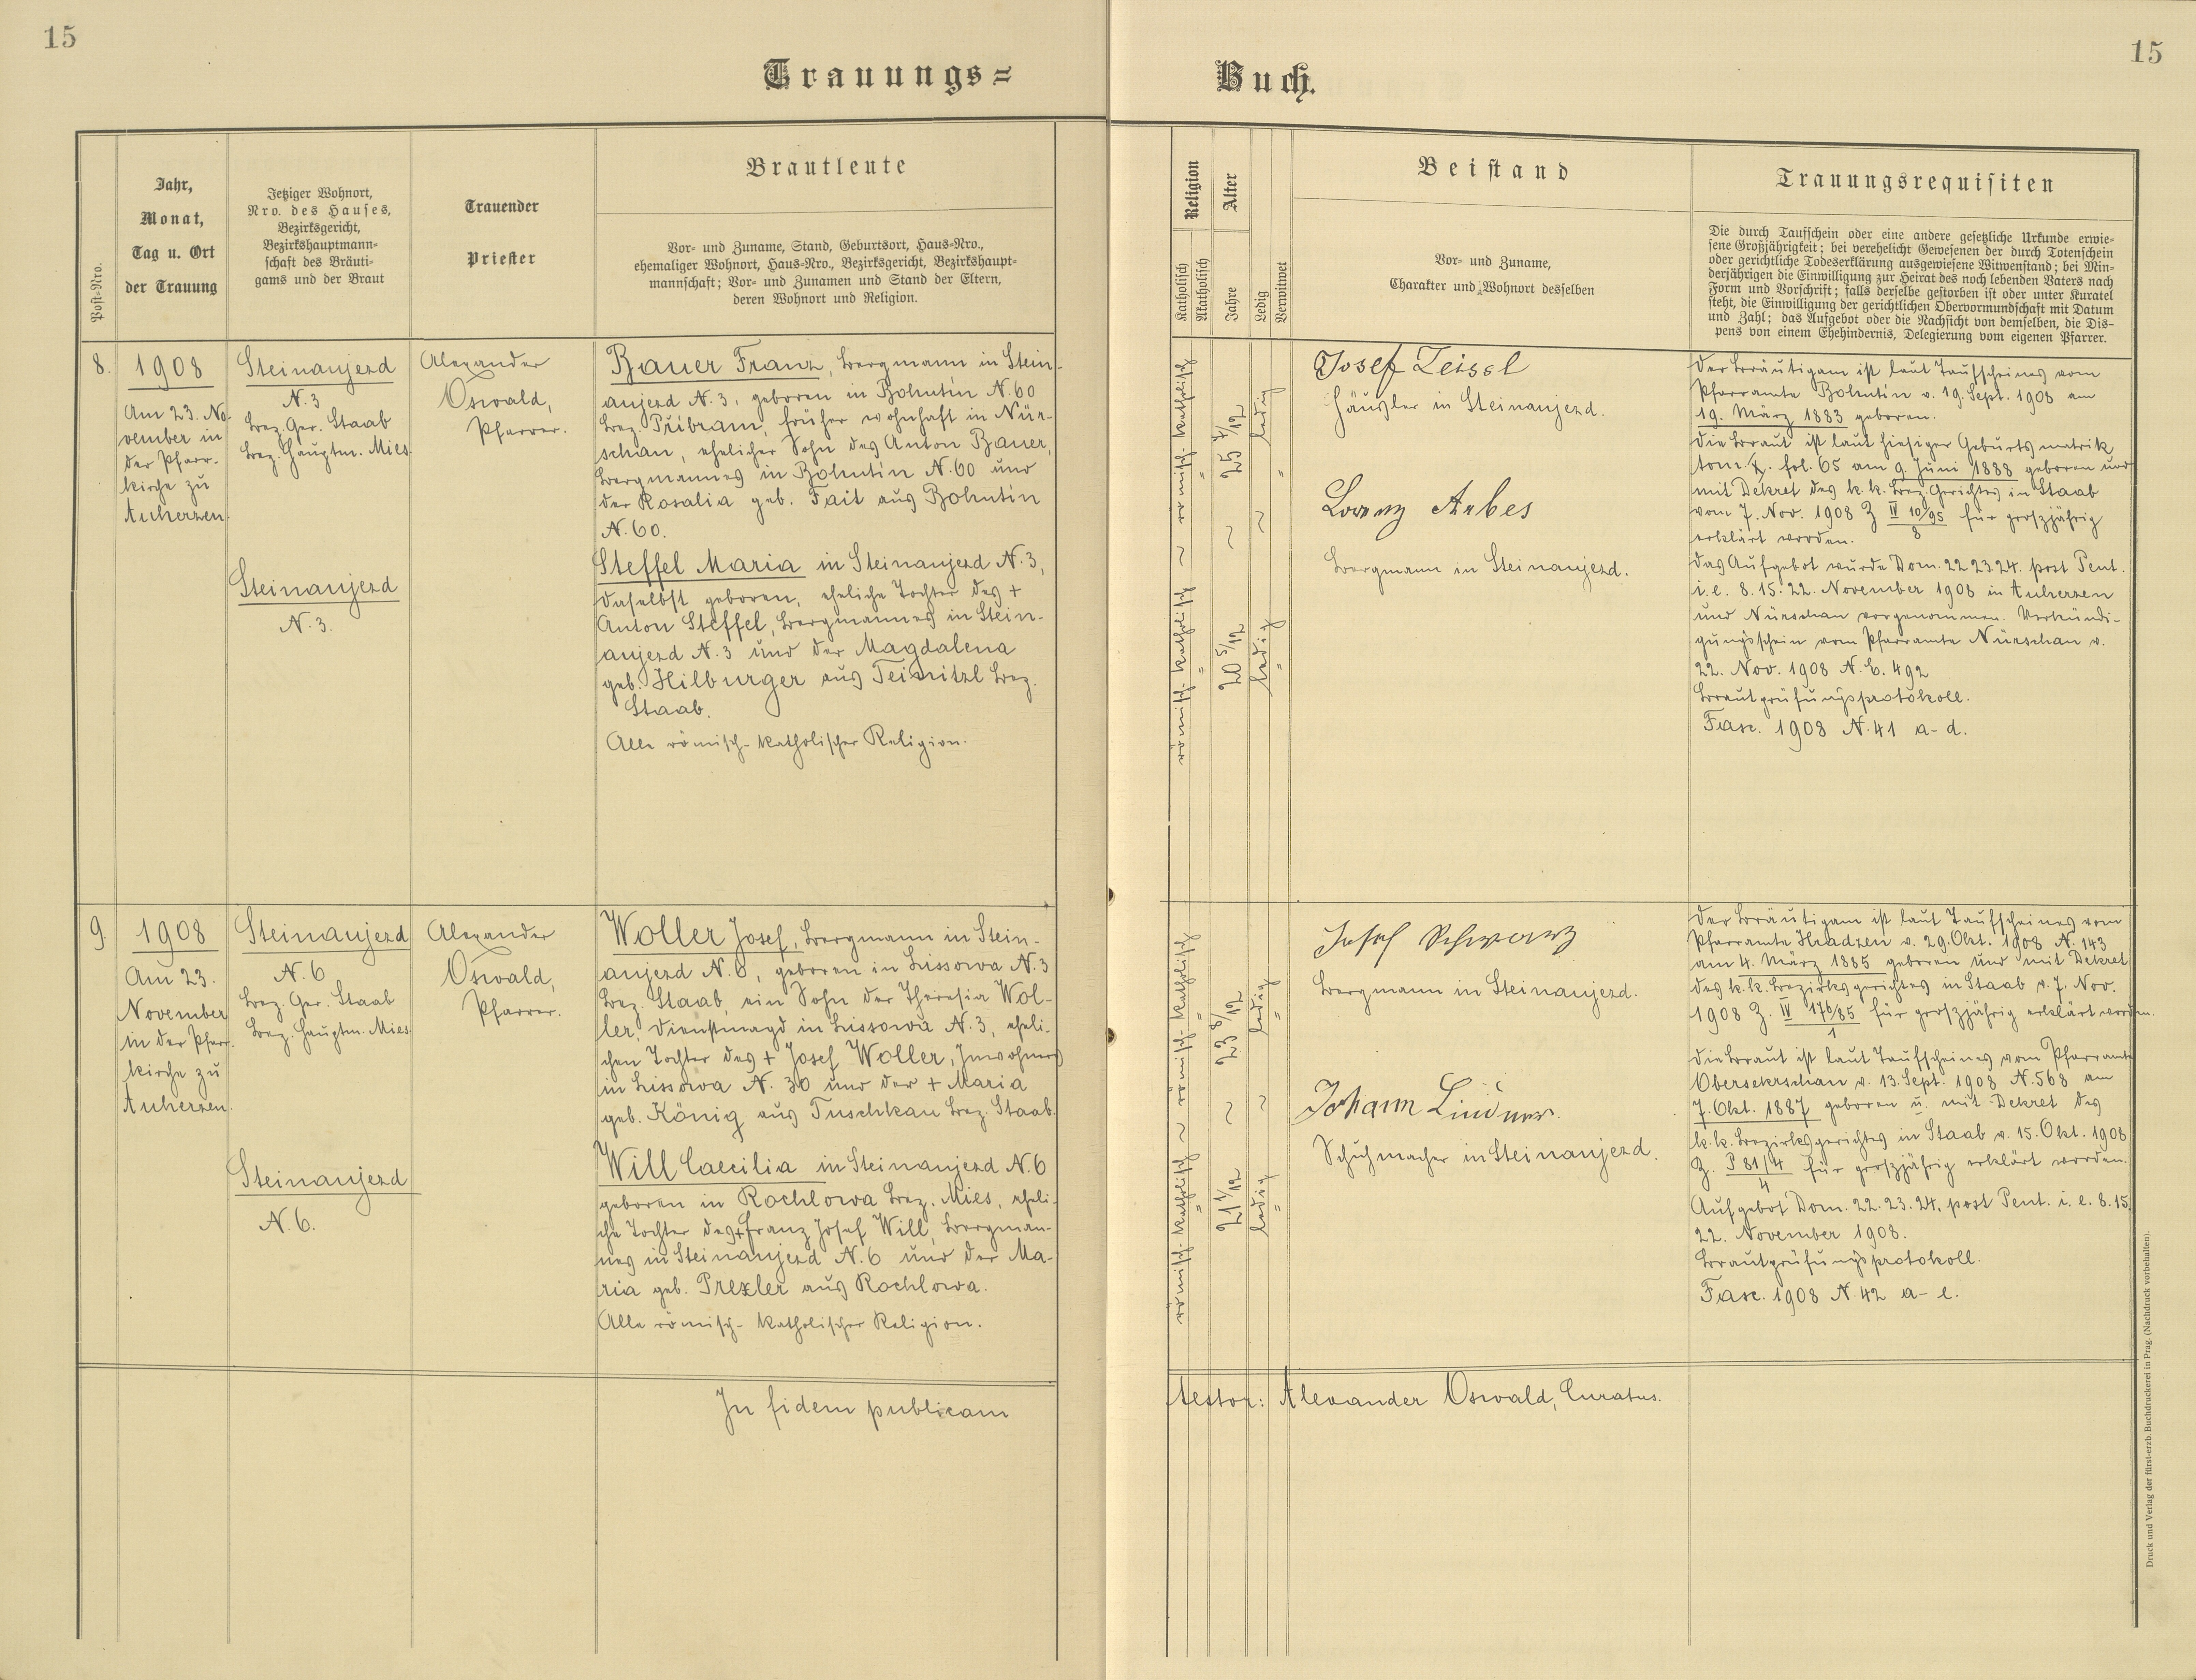 15
15
Trauungs=
Buch.
Post-Nro.
Jahr,
Monat,
Tag u. Ort
der Trauung
Jetziger Wohnort,
Nro. des Hauses,
Bezirksgericht,
Bezirkshauptmann=
schaft des Bräuti=
gams und der Braut
Trauender
Priester
Brautleute
Vor- und Zuname, Stand, Geburtsort, Haus=Nro.,
ehemaliger Wohnort, Haus=Nro., Bezirksgericht, Bezirkshaupt=
mannschaft; Vor- und Zunamen und Stand der Eltern,
deren Wohnort und Religion.
Religion
Katholisch
Akatholisch
Alter
Jahre
Ledig
Verwitwet
Beistand
Vor- und Zuname,
Charakter und Wohnort desselben
Trauungsrequisiten
Die durch Taufschein oder eine andere gesetzliche Urkunde erwie=
sene Großjährigkeit; bei verehelicht Gewesenen der durch Totenschein
oder gerichtliche Todeserklärung ausgewiesene Witwenstand; bei Min=
derjährigen die Einwilligung zur Heirat des noch lebenden Vaters nach
Form und Vorschrift; falls derselbe gestorben ist oder unter Kuratel
steht, die Einwilligung der gerichtlichen Obervormundschaft mit Datum
und Zahl; das Aufgebot oder die Nachsicht von demselben, die Dis=
pens von einem Ehehindernis, Delegierung vom eigenen Pfarrer.
8.
1908
Am 23. No-
vember in
der Pfarr-
kirche zu
Auherzen.
Steinaujezd
N. 3
Bez. Ger. Staab
Bez. Hauptm. Mies.
Steinaujezd
N. 3.
Alexander
Oswald,
Pfarrer.
Bauer Franz, Bergmann in Stein-
aujezd N. 3, geboren in Bohutín N. 60
Bez. Příbram, früher wohnhaft in Nür-
schan, ehelicher Sohn des Anton Bauer,
Bergmannes in Bohutín N. 60 und
der Rosalia geb. Fait aus Bohutín
N. 60.
Steffel Maria in Steinaujezd N. 3,
daselbst geboren, eheliche Tochter des +
Anton Steffel, Bergmannes in Stein-
aujezd N. 3 und der Magdalena
geb. Hilburger aus Teinitzl Bez.
Staab.
Alle römisch-katholischer Religion.
römisch-katholisch ~ römisch-katholisch
" "
25 8/12
~
20 5/12
ledig
~
ledig
"
"
Josef Zeisel
Häusler in Steinaujezd.
Lorenz Arbes
Bergmann in Steinaujezd.
Der Bräutigam ist laut Taufscheines vom
Pfarramte Bohutín v. 19. Sept. 1908 am
19. März 1883 geboren.
Die Braut ist laut hiesiger Geburtsmatrik
tom. X. fol. 65 am 9. Juni 1888 geboren und
mit Dekret des k. k. Bez. Gerichtes in Staab
vom 7. Nov. 1908 Z IV 10/95 für großjährig
8
erklärt worden.
Das Aufgebot wurde Dom. 22 23 24. post Pent.
i. e. 8. 15. 22. November 1908 in Auherzen
und Nürschan vorgenommen. Verkündi-
gungsschein vom Pfarramte Nürschan v.
22. Nov. 1908 N. E. 492
Brautprüfungsprotokoll.
Fasc. 1908 N. 41 a-d.
9.
1908
Am 23.
November
in der Pfarr-
kirche zu
Auherzen.
Steinaujezd
N. 6
Bez. Ger. Staab
Bez. Hauptm. Mies
Steinaujezd
N. 6.
Alexander
Oswald,
Pfarrer.
Woller Josef, Bergmann in Stein-
aujezd N. 6, geboren in Lissowa N. 3
Bez. Staab, ein Sohn der Theresia Wol-
ler, Dienstmagd in Lissowa N. 3, eheli-
chen Tochter des + Josef Woller, Inwohners
in Lissowa N. 30 und der + Maria
geb. König aus Tuschkau Bez. Staab.
Will Caecilia in Steinaujezd N. 6
geboren in Rochlowa Bez. Mies, eheli-
che Tochter des + Franz Josef Will, Bergman-
nes in Steinaujezd N. 6 und der Ma-
ria geb. Prexler aus Rochlowa.
Alle römisch-katholischer Religion.
römisch-katholisch ~ römisch-katholisch
" "
23 8/12
~
21 1/12
ledig
~
ledig
"
"
Josef Schwarz
Bergmann in Steinaujezd.
Johann Lindner.
Schuhmacher in Steinaujezd.
Der Bräutigam ist laut Taufscheines vom
Pfarramte Hradzen v. 29. Okt. 1908 N. 143
am 4. März 1885 geboren und mit Dekret
des k. k. Bezirksgerichtes in Staab v. 7. Nov.
1908 Z. IV 176/85 für großjährig erklärt worden.
1
Die Braut ist laut Taufscheines vom Pfarramte
Obersekrschan v. 13. Sept. 1908 N. 568 am
7. Okt. 1887 geboren u. mit Dekret des
k. k. Bezirksgerichtes in Staab v. 15. Okt. 1908
Z. P 81/4 für großjährig erklärt worden.
4
Aufgebot Dom. 22. 23. 24. post Pent. i. e. 8. 15.
22. November 1908.
Brautprüfungsprotokoll.
Fasc. 1908 N. 42 a-e.
In fidem publicam
testor: Alexander Oswald, Curatus.
Druck und Verlag der fürst-erzb. Buchdruckerei in Prag. (Nachdruck vorbehalten).